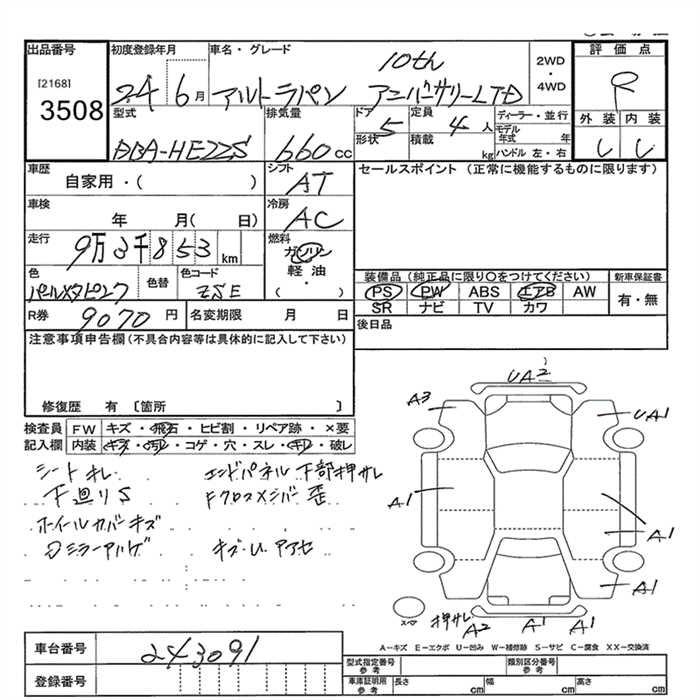 出品番号 初度登録年月 車名・グレード 2WD・4WD 評価点
[2168]
3508
24 6月 アルトラパン 10th アニバーサリーLTD R
型式 排気量 ドア 定員 ディーラー・並行 外装 内装
DBA-HE22S 660cc 5 4人 モデル年式 年
形状 積載 kg ハンドル 左・右
車歴 シフト セールスポイント (正常に機能するものに限ります)
自家用・( ) AT
車検 冷房
年 月( 日) AC
走行 燃料
9万3千853km ガソリン
軽油
・
( )
色 色替 色コード 装備品(純正品に限り○をつけてください) 新車保証書
パールメタピンク ZSE PS PW ABS エアB AW 有・無
SR ナビ TV カワ
R券 9070円 名変期限 月 日 後日品
注意事項申告欄(不具合内容等は具体的に記入して下さい)
修復歴 有 〔箇所 〕
検査員 FW キズ・飛石・ヒビ割・リペア跡・×要
記入欄 内装 キズ・汚れ・コゲ・穴・スレ・キレ・破レ
シートキレ エンドパネル下部押サレ
下廻りS Fクロスメンバー歪
ホイールカバーキズ
Dミラーアルゲ キズ・U アアセ
UA2
A3 UA1
A1 A1
A1
押サレ
A2 A1 A1
スペア
A-キズ E-エクボ U-凹み W-補修跡 S-サビ C-腐食 XX-交換済
車台番号 243091
登録番号
型式指定番号 参考 類別区分番号 参考
車庫証明用 参考 長さ cm 幅 cm 高さ cm